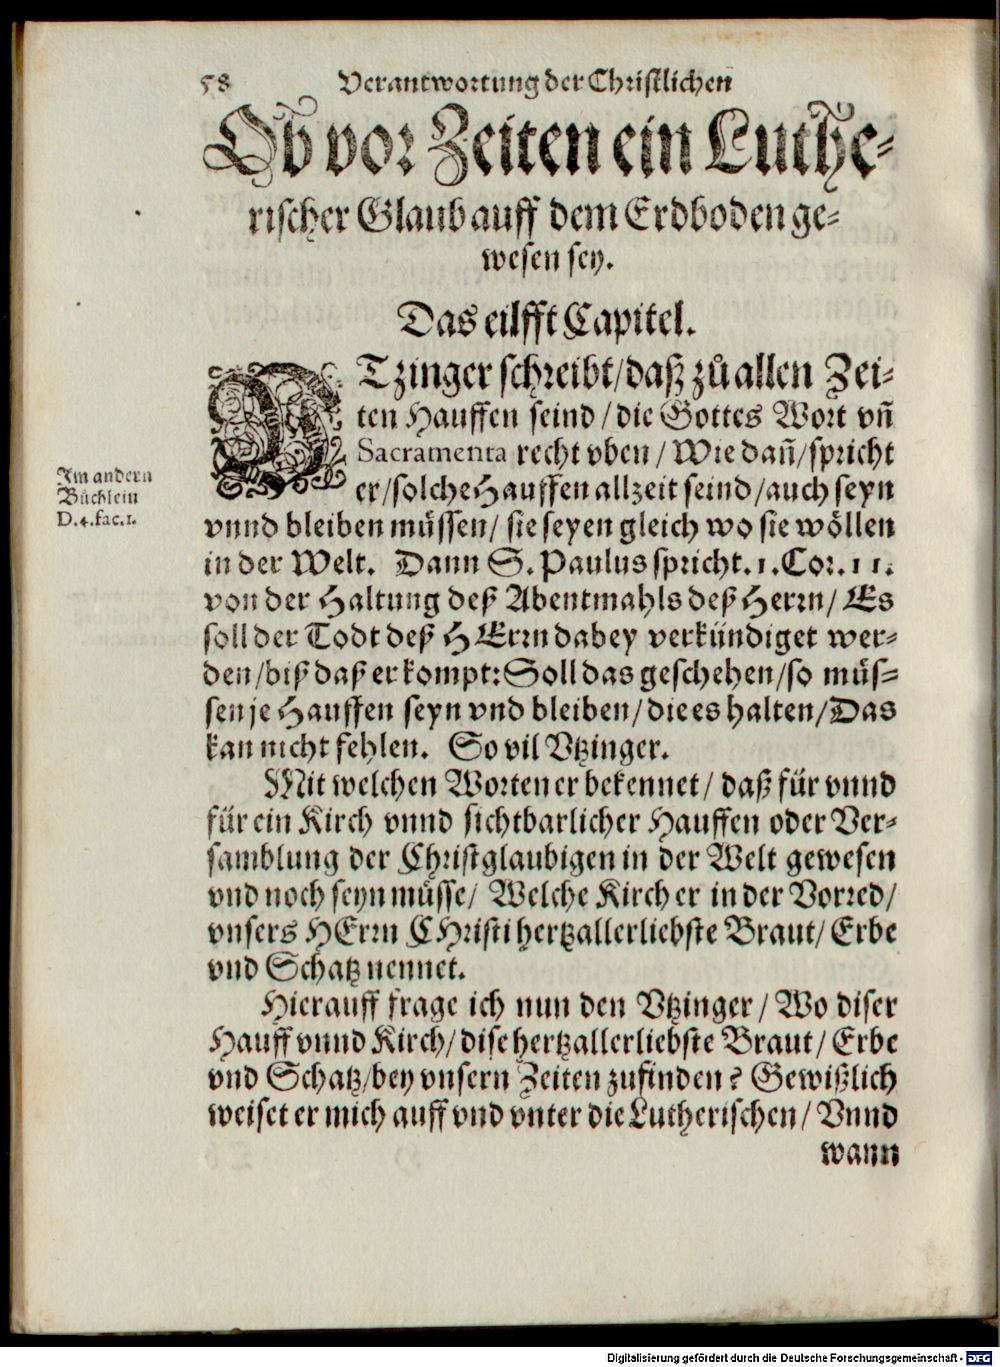 58 Verantwortung der Christlichen
Ob vor Zeiten ein Luthe-
rischer Glaub auff dem Erdboden ge-
wesen sey.
Das eilfft Capitel.
VTzinger schreibt/daß zů allen Zei-
ten Hauffen seind/die Gottes Wort vñ
Sacramenta recht vben/Wie dañ/spricht
er/solche Hauffen allzeit seind/auch seyn
Im andern
Büchlein
D.4.fac.1.
vnnd bleiben müssen/sie seyen gleich wo sie wöllen
in der Welt. Dann S. Paulus spricht.1.Cor.11.
von der Haltung deß Abentmahls deß Herrn/Es
soll der Todt deß HErrn dabey verkündiget wer-
den/biß daß er kompt: Soll das geschehen/so müs-
sen je Hauffen seyn vnd bleiben/die es halten/Das
kan nicht fehlen. So vil Vtzinger.
Mit welchen Worten er bekennet/daß für vnnd
für ein Kirch vnnd sichtbarlicher Hauffen oder Ver-
samblung der Christglaubigen in der Welt gewesen
vnd noch seyn müsse/Welche Kirch er in der Vorred/
vnsers HErrn CHristi hertzallerliebste Braut/Erbe
vnd Schatz nennet.
Hierauff frage ich nun den Vtzinger/Wo diser
Hauff vnnd Kirch/dise hertzallerliebste Braut/Erbe
vnd Schatz/bey vnsern Zeiten zufinden? Gewißlich
weiset er mich auff vnd vnter die Lutherischen/Vnnd
wann
Digitalisierung gefördert durch die Deutsche Forschungsgemeinschaft - DFG